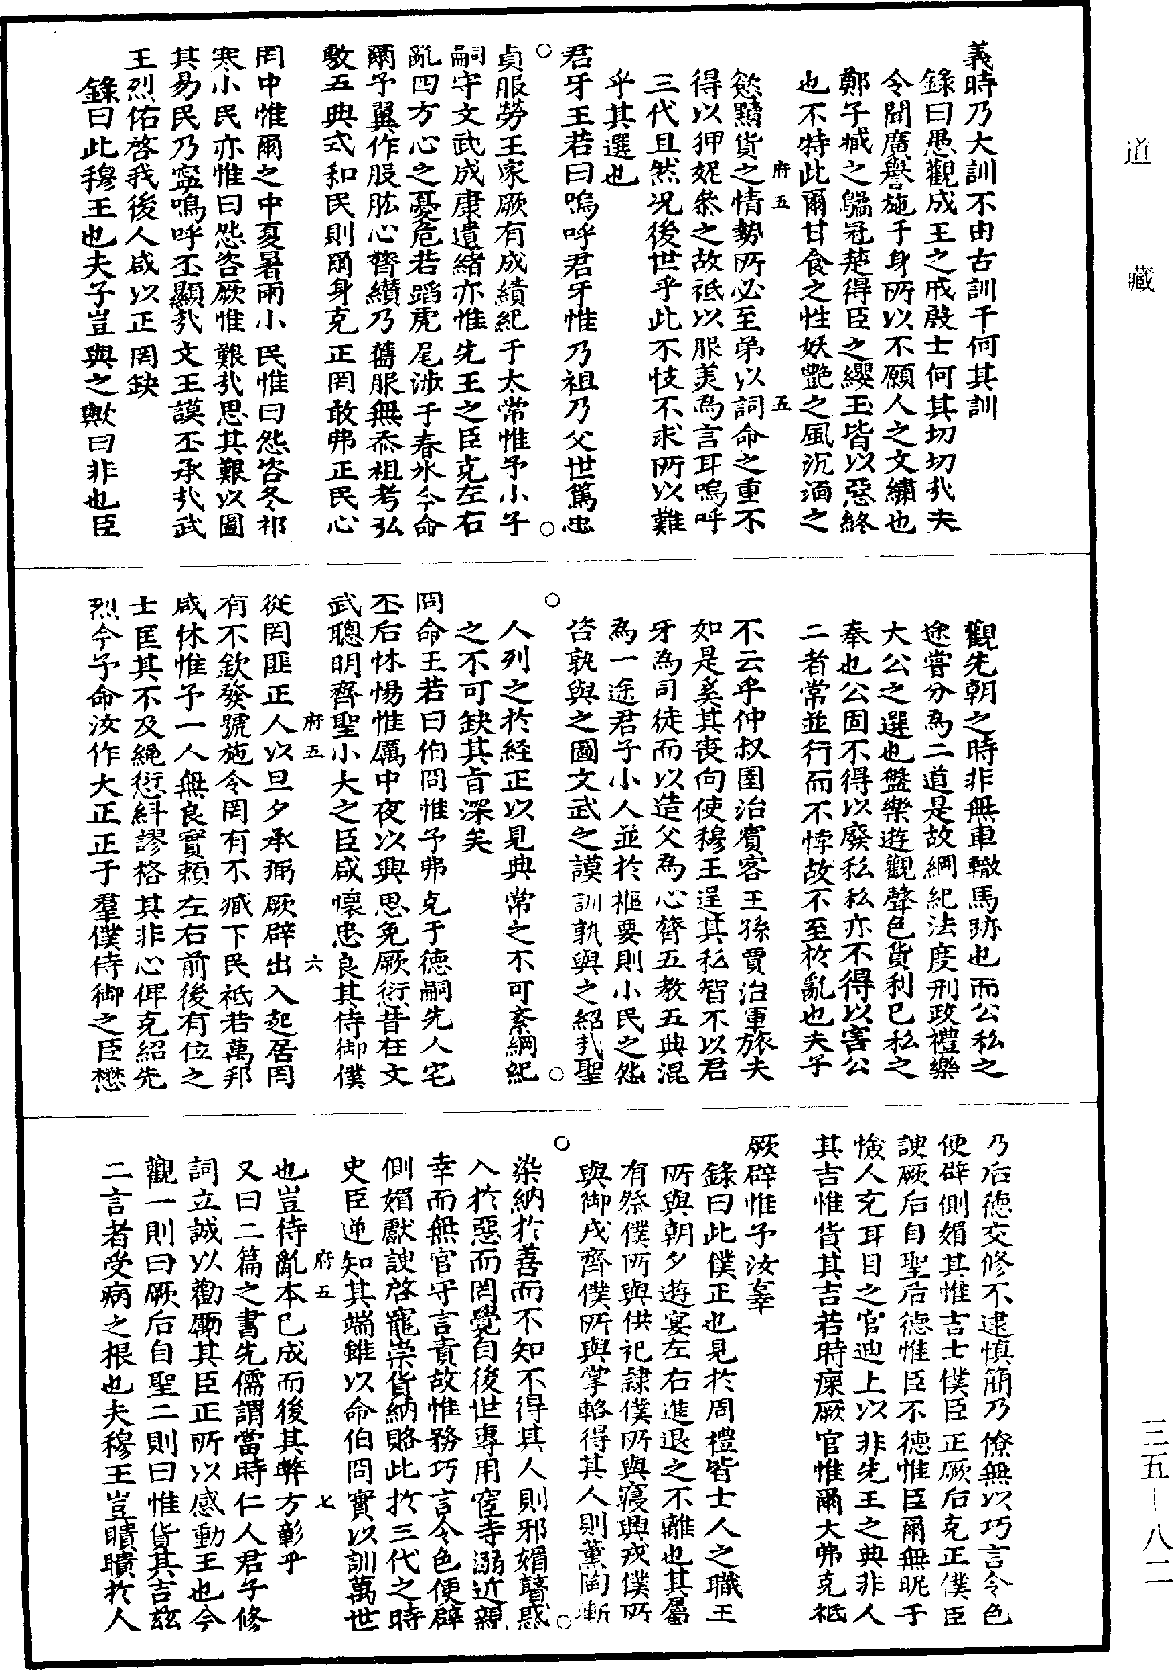 道藏
義時乃大訓不由古訓于何其訓
錄曰愚觀成王之戒殷士何其切切哉夫
令聞廣譽施于身所以不願人之文繡也
鄭子臧之鷸冠楚得臣之纓玉皆以惡終
也不特此爾甘食之性妖艷之風沉湎之
府五 五
慾黷貨之情勢所必至弟以詞命之重不
得以狎妮叅之故祗以服美為言耳嗚呼
三代且然况後世乎此不忮不求所以難
乎其選也
君牙王若曰嗚呼君牙惟乃祖乃父世篤忠
貞服勞王家厥有成績紀于太常惟予小子
嗣守文武成康遺緒亦惟先王之臣克左右
亂四方心之憂危若蹈虎尾涉于春氷今命
爾予翼作股肱心膂纘乃舊服無忝祖考弘
敷五典式和民則爾身克正罔敢弗正民心
罔中惟爾之中夏暑雨小民惟曰怨咨冬祁
寒小民亦惟曰怨咨厥惟艱哉思其艱以圖
其易民乃寧嗚呼丕顯哉文王謨丕承哉武
王烈佑啓我後人咸以正罔缺
錄曰此穆王也夫子豈與之歟曰非也臣
觀先朝之時非無車轍馬跡也而公私之
途嘗分為二道是故綱紀法度刑政禮樂
大公之選也盤樂遊觀聲色貨利已私之
奉也公固不得以廢私私亦不得以害公
二者常並行而不悖故不至於亂也夫子
不云乎仲叔圉治賓客王孫賈治軍旅夫
如是奚其喪向使穆王逞其私智不以君
牙為司徒而以造父為心膂五教五典混
為一途君子小人並於樞要則小民之怨
咨孰與之圖文武之謨訓孰與之紹哉聖
人列之於経正以見典常之不可紊綱紀
之不可缺其旨深矣
冏命王若曰伯冏惟予弗克于德嗣先人宅
丕后怵惕惟厲中夜以興思免厥愆昔在文
武聰明齊聖小大之臣咸懷忠良其侍御僕
府五 六
從罔匪正人以旦夕承弼厥辟出入起居罔
有不欽發號施令罔有不臧下民祗若萬邦
咸休惟予一人無良實賴左右前後有位之
士匡其不及繩愆糾謬格其非心俾克紹先
烈今予命汝作大正正于羣僕侍御之臣懋
乃后德交修不逮慎簡乃僚無以巧言令色
便辟側媚其惟吉士僕臣正厥后克正僕臣
諛厥后自聖后德惟臣不德惟臣爾無昵于
憸人充耳目之官迪上以非先王之典非人
其吉惟貨其吉若時瘝厥官惟爾大弗克祗
厥辟惟予汝辜
錄曰此僕正也見於周禮皆士人之職王
所與朝夕遊宴左右進退之不離也其屬
有祭僕所與供祀隸僕所與寢興戎僕所
與御戎齊僕所與掌輅得其人則薰陶漸
染納於善而不知不得其人則邪媚瞽惑
入於惡而罔覺自後世專用宦寺溺近親
幸而無官守言責故惟務巧言令色便辟
側媚獻諛啓寵崇貨納賂此於三代之時
史臣逆知其端錐以命伯冏實以訓萬世
府五 七
也豈待亂本已成而後其弊方彰乎
又曰二篇之書先儒謂當時仁人君子修
詞立誠以勸勵其臣正所以感動王也今
觀一則曰厥后自聖二則曰惟貨其吉兹
二言者受病之根也夫穆王豈瞶瞶於人
三五—八二